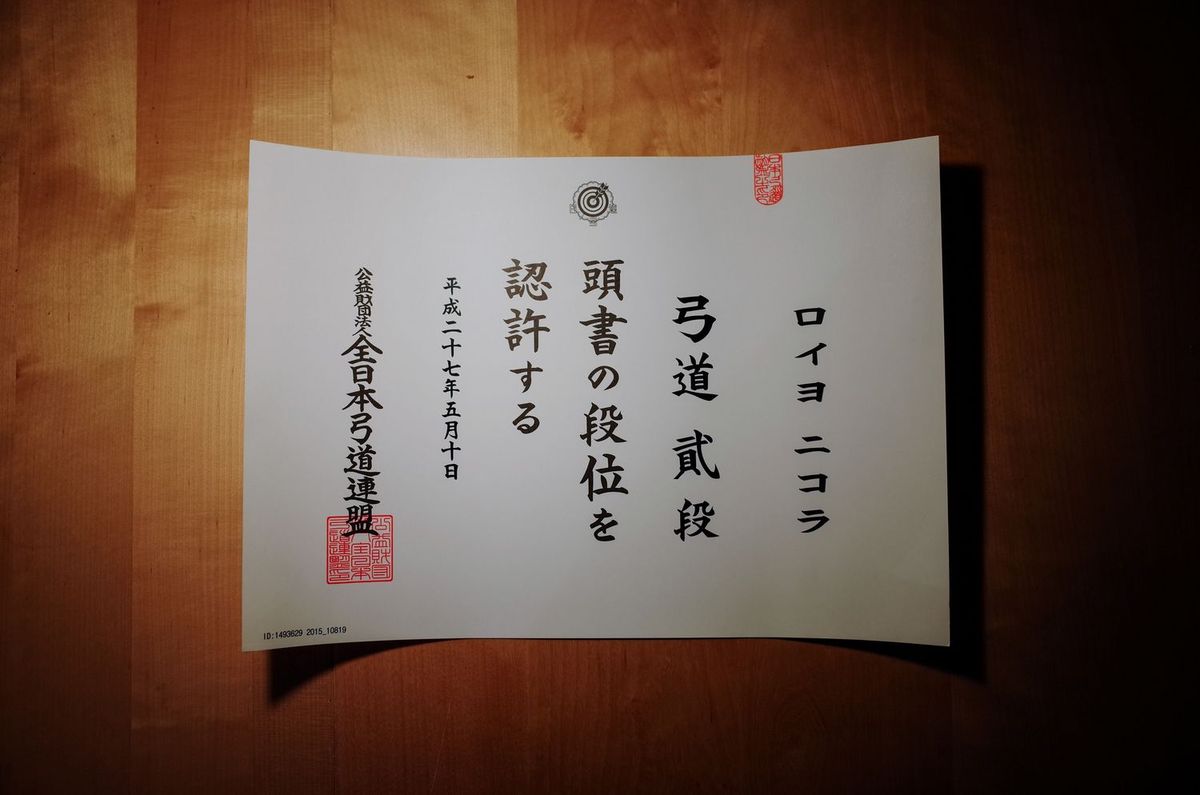 ロイヨ ニコラ
弓道 貳段
頭書の段位を
認許する
平成二十七年五月十日
公益財団法人全日本弓道連盟
ID:1493629 2015_10819